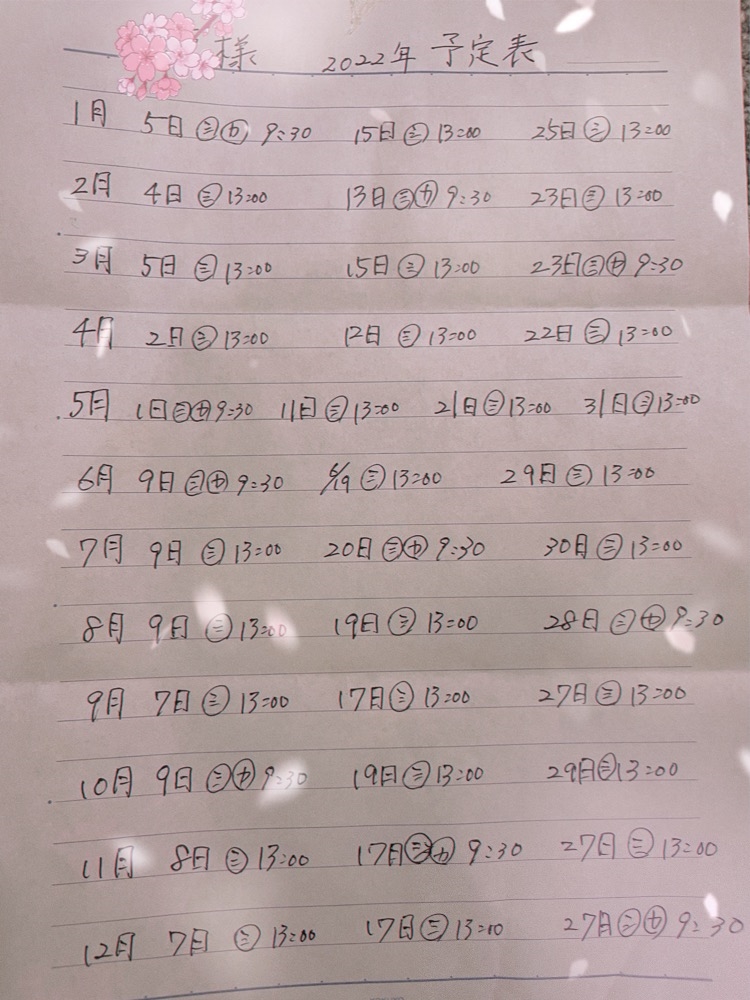 様 2022年 予定表
1月 5日 ㊂㋕ 9:30 15日 ㊂ 13:00 25日 ㊂ 13:00
2月 4日 ㊂ 13:00 13日 ㊂㋕ 9:30 23日 ㊂ 13:00
3月 5日 ㊂ 13:00 15日 ㊂ 13:00 23日 ㊂㋕ 9:30
4月 2日 ㊂ 13:00 12日 ㊂ 13:00 22日 ㊂ 13:00
5月 1日 ㊂㋕ 9:30 11日 ㊂ 13:00 21日 ㊂ 13:00 31日 ㊂ 13:00
6月 9日 ㊂㋕ 9:30 6/19 ㊂ 13:00 29日 ㊂ 13:00
7月 9日 ㊂ 13:00 20日 ㊂㋕ 9:30 30日 ㊂ 13:00
8月 9日 ㊂ 13:00 19日 ㊂ 13:00 28日 ㊂㋕ 9:30
9月 7日 ㊂ 13:00 17日 ㊂ 13:00 27日 ㊂ 13:00
10月 9日 ㊂㋕ 9:30 19日 ㊂ 13:00 29日 ㊂ 13:00
11月 8日 ㊂ 13:00 17日 ㊂㋕ 9:30 27日 ㊂ 13:00
12月 7日 ㊂ 13:00 17日 ㊂ 13:00 27日 ㊂㋕ 9:30